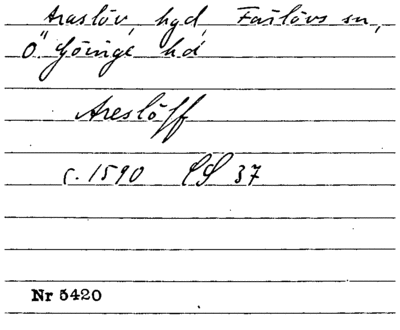 Araslöv, hgd, Färlövs sn,
Ö. Göinge hd
Areslöff
c. 1590 LS 37
Nr 5420